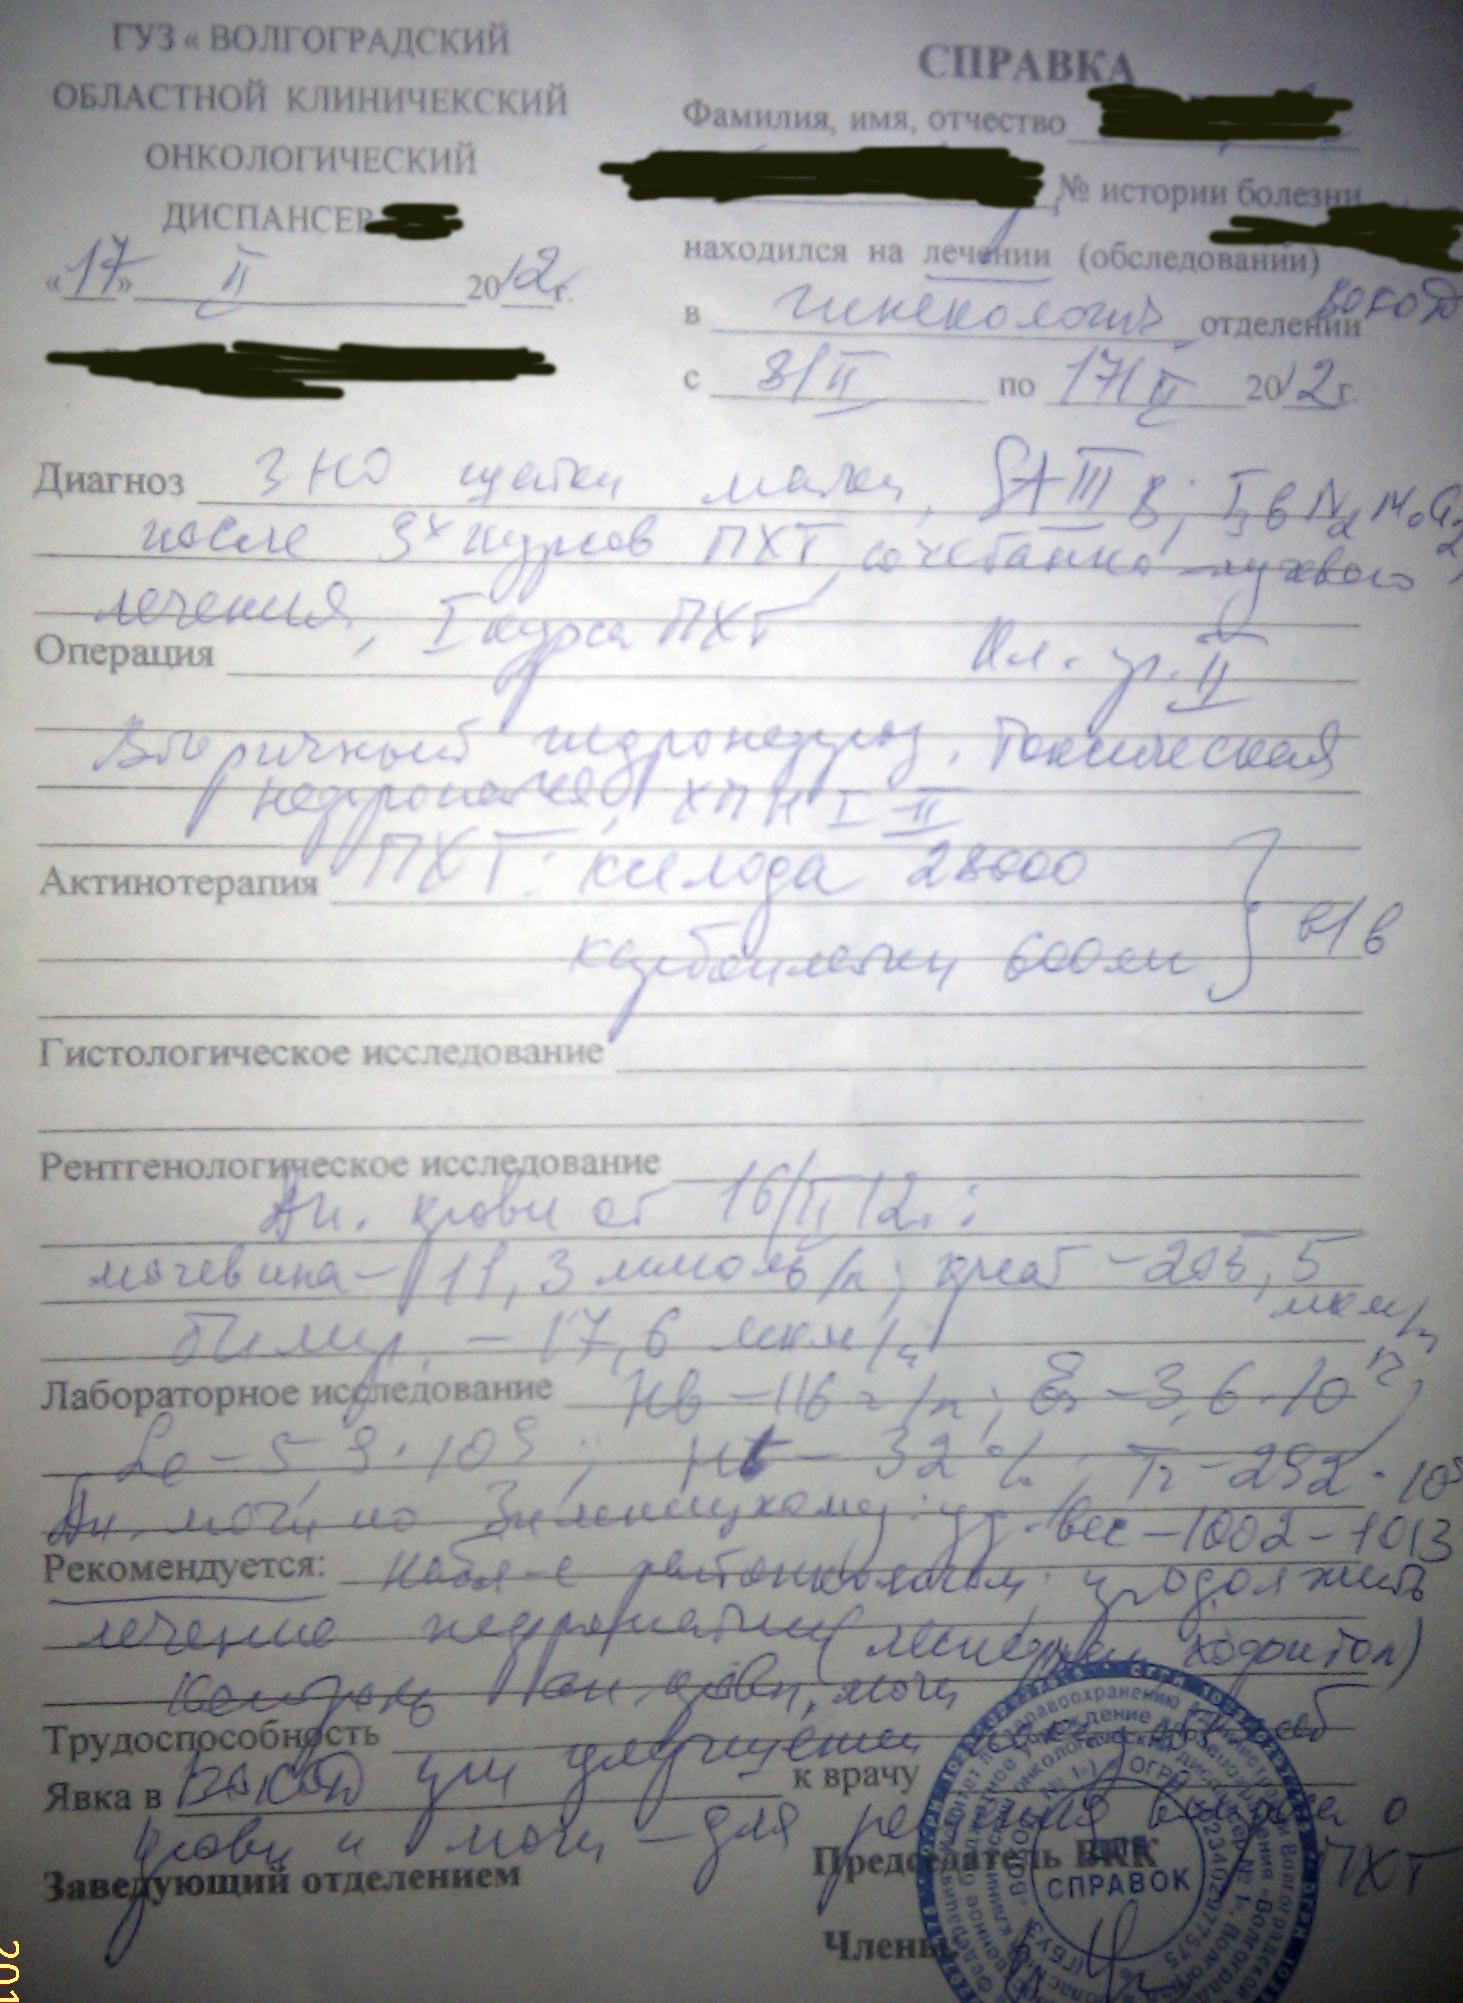 ГУЗ « ВОЛГОГРАДСКИЙ
ОБЛАСТНОЙ КЛИНИЧЕКСКИЙ
ОНКОЛОГИЧЕСКИЙ
ДИСПАНСЕР
«17» II 2012 г.
СПРАВКА
Фамилия, имя, отчество
№ истории болезни
находился на лечении (обследовании)
в гинекологич отделении ВОКОД
с 8/II по 17/II 2012 г.
Диагноз ЗНО шейки матки, St III B;
после 3х курсов ПХТ, сочетанно-лучевого
лечения, I курса ПХТ
Операция Кл. гр. II
Вторичный гидронефроз. Токсическая
нефропатия, ХПН I-II
Актинотерапия ПХТ: кселода 28000
карбоплатин 600мг } в/в
Гистологическое исследование
Рентгенологическое исследование
Ан. крови от 16/II 12г.:
мочевина - 11,3 ммоль/л; креат - 205,5
мкм/л
билир. - 17,6 мкм/л
Лабораторное исследование Hb - 116 г/л; Er - 3,6·10¹²;
Le - 5,9·10⁹; Ht - 32 %; Tr - 292·10⁹
Ан. мочи по Зимницкому: уд. вес - 1002-1013
Рекомендуется: набл-е райононколога; продолжить
лечение нефропатии (леспефрил, хофитол)
контроль ан. крови, мочи
Трудоспособность
Явка в ВОКОД при улучшении показателей к врачу
крови и мочи - для решения вопроса о
ПХТ
Заведующий отделением
Председатель ВКК
Члены:
ДЛЯ
СПРАВОК